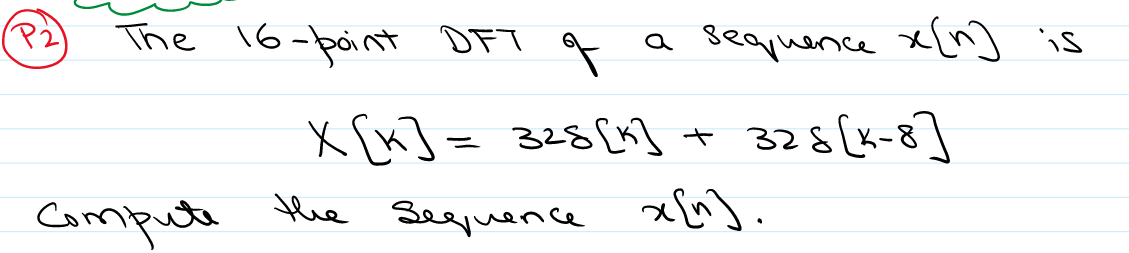 P2 The 16-point DFT of a sequence x[n] is
X[k] = 32δ[k] + 32δ[k-8]
Compute the sequence x[n].